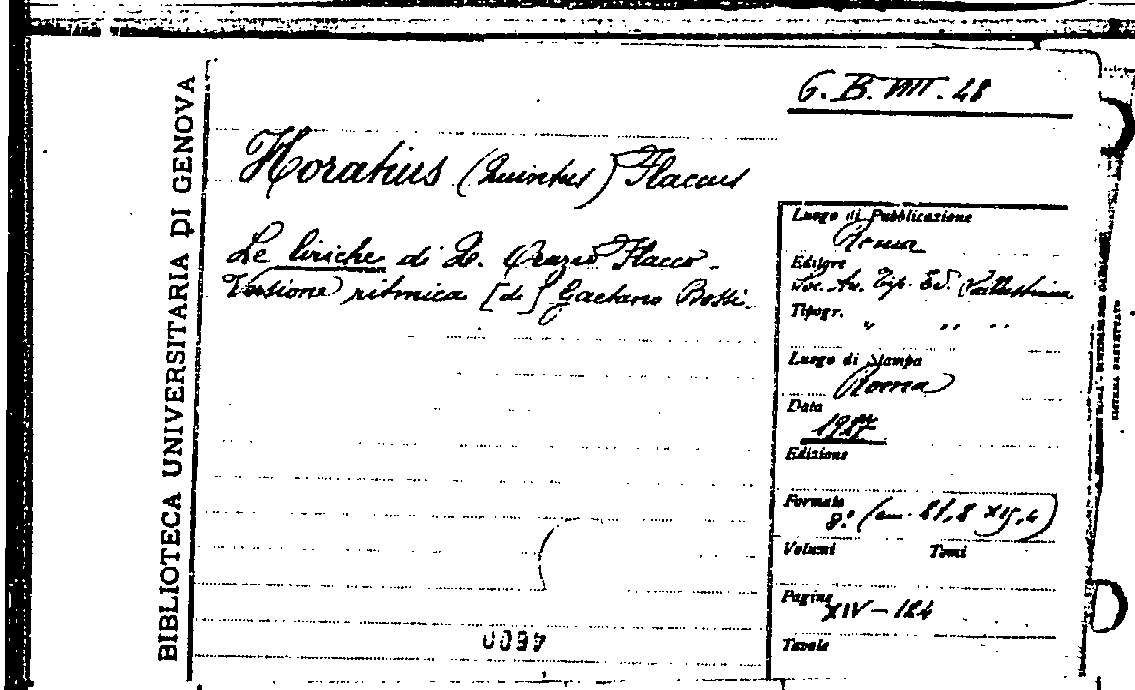 6. B. VIII. 48
BIBLIOTECA UNIVERSITARIA DI GENOVA
Horatius (Quintus) Flaccus
Le liriche di Q. Orazio Flacco.
Versione ritmica [di] Gaetano Botti.
Luogo di Pubblicazione
Roma
Editore
Soc. An. Tip. Ed.
Tipogr.
" " "
Luogo di Stampa
Roma
Data
Edizione
Formato
8.° (cm. 21,8 x 15,4)
Volumi Tomi
Pagine
XIV - 184
Tavole